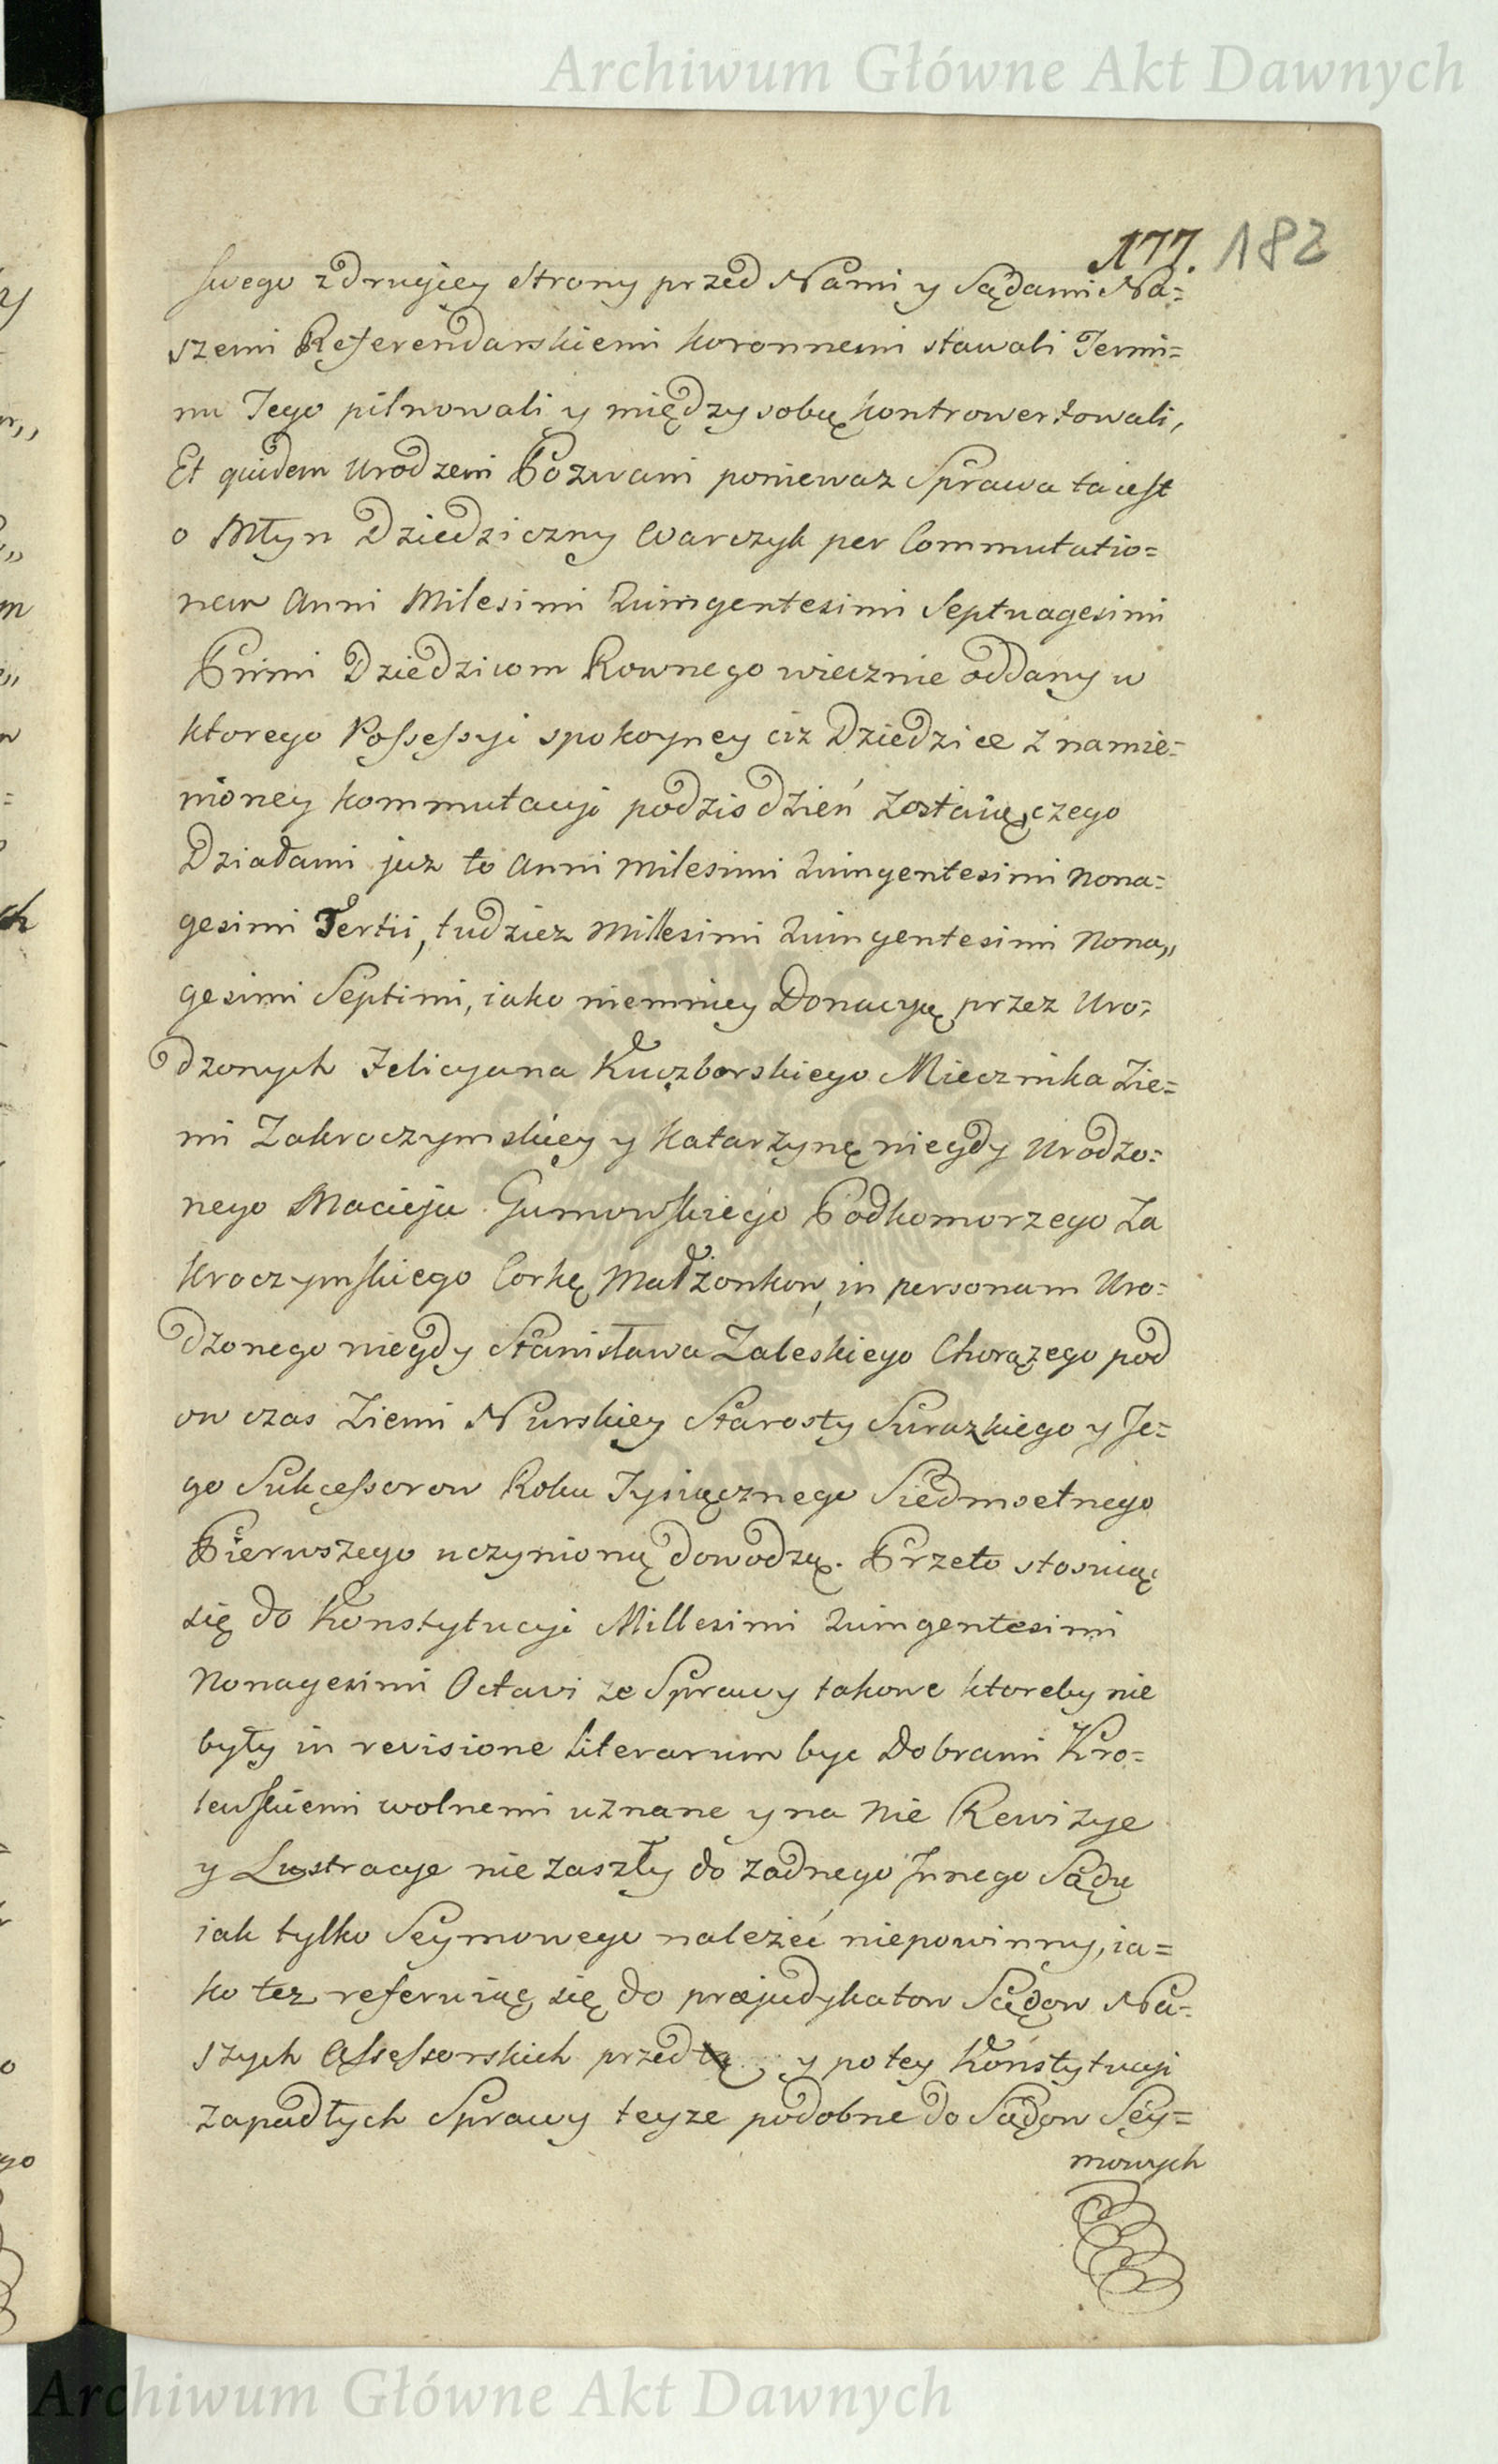 Archiwum Główne Akt Dawnych
177. 182
swego z drugiey strony przed Nami y Sądami Na=
szemi Referendarskiemi koronnemi stawali Termi=
nu Tego pilnowali y między sobą kontrowertowali,
Et quidem Urodzeni Pozwani poniewaz Sprawa ta iest
o Młyn Dziedziczny Warczyk per Commutatio=
nem Anni Milesimi Quingentesimi Septuagesimi
Primi Dziedzicom Rownego wiecznie oddany w
ktorego Possessyi spokoyney ciz Dziedzice z namie=
nioney kommutacyi podzisdzień zostaią, czego
Działami juz to Anni Milesimi Quingentesimi Nona=
gesimi Tertii, tudziez Millesimi Quingentesimi Nona„
gesimi Septimi, iako niemniey Donacyą przez Uro=
dzonych Felicyana Kuczborskiego Miecznika Zie=
mi Zakroczymskiey y Katarzynę niegdy Urodzo=
nego Macieja Gumowskiego Podkomorzego Za
kroczymskiego Corkę Małżonkow, in personam Uro=
dzonego niegdy Stanisława Zaleskiego Chorązego pod
ow czas Ziemi Nurskiey Starosty Surazkiego y Je=
go Sukcessorow Roku Tysiącznego Siedmsetnego
Pierwszego uczynioną dowodzą. Przeto stosuiąc
się do Konstytucyi Millesimi Quingentesimi
Nonagesimi Octavi ze Sprawy takowe ktoreby nie
były in revisione literarum byc Dobrami Kro=
lewskiemi wolnemi uznane y na nie Rewizye
y Lustracye nie zaszły do zadnego Innego Sądu
iak tylko Seymowego należeć niepowinny, ia=
ko tez referuiąc się do præjudykatow Sądow Na=
szych Assessorskich przed tą y po tey Konstytucyi
zapadłych Sprawy teyze podobne do Sądow Sey=
mowych
Archiwum Główne Akt Dawnych